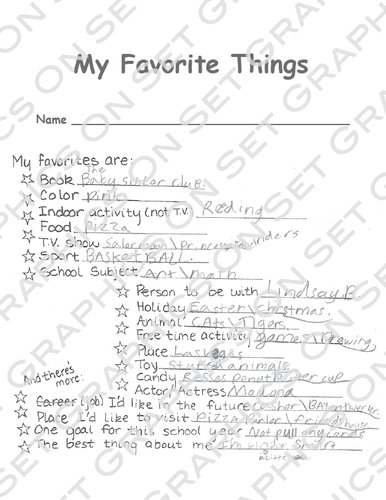 My Favorite Things
Name
My favorites are:
Book The Baby sitter club.
Color pink
Indoor activity (not T.V.) Reding
Food Pizza
T.V. show Salormon\Princess
Sport BASKETBALL.
School Subject Art\math
Person to be with Lindsay B
Holiday Easter\Christmas.
Animal CAts\Tigers.
Free time activity games\Drawing,
Place
Toy Stuffed animals
Candy
Actor/Actress Madona
And there's more:
Career (job) I'd like in the future
Place I'd like to visit Pizza Parlor\friends house
One goal for this school year Not pull
The best thing about me I'm kinda Smart
GRAPHICS ON SET GRAPHICS ON SET GRAPHICS ON SET